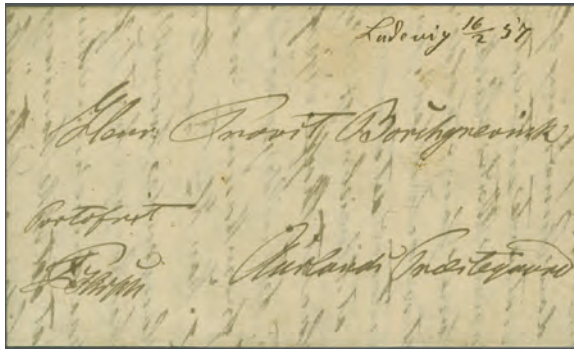 Ludevig 16/2 57
Herr Provst Borchgrevink
Portofrit
Aurlands Præstegaard